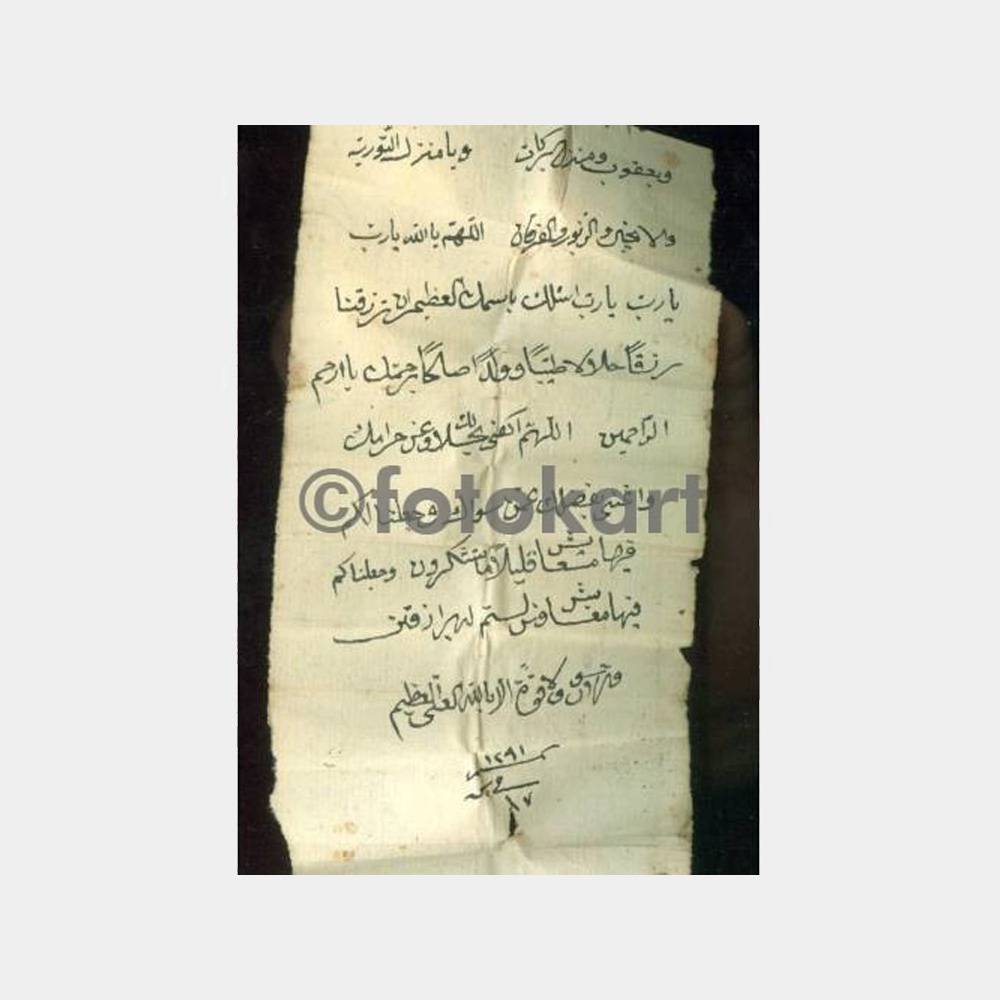 ويعقوب ومنزل البركات ويا منزل التورية
والانجيل والزبور والفرقان اللهم يا الله يا رب
يا رب يا رب اسئلك باسمك العظيم ان ترزقنا
رزقًا حلالا طيبًا وولدًا صالحًا برحمتك يا ارحم
الراحمين اللهم اكفنى بحلالك وعن حرامك
©fotokart
واغننى بفضلك عمن سواك وجعلنا لكم
فيها معايش قليلا ما تشكرون وجعلنا لكم
فيها معايش ومن لستم له برازقين
ولا قوة الا بالله العلى العظيم
١٢٩١
١٧